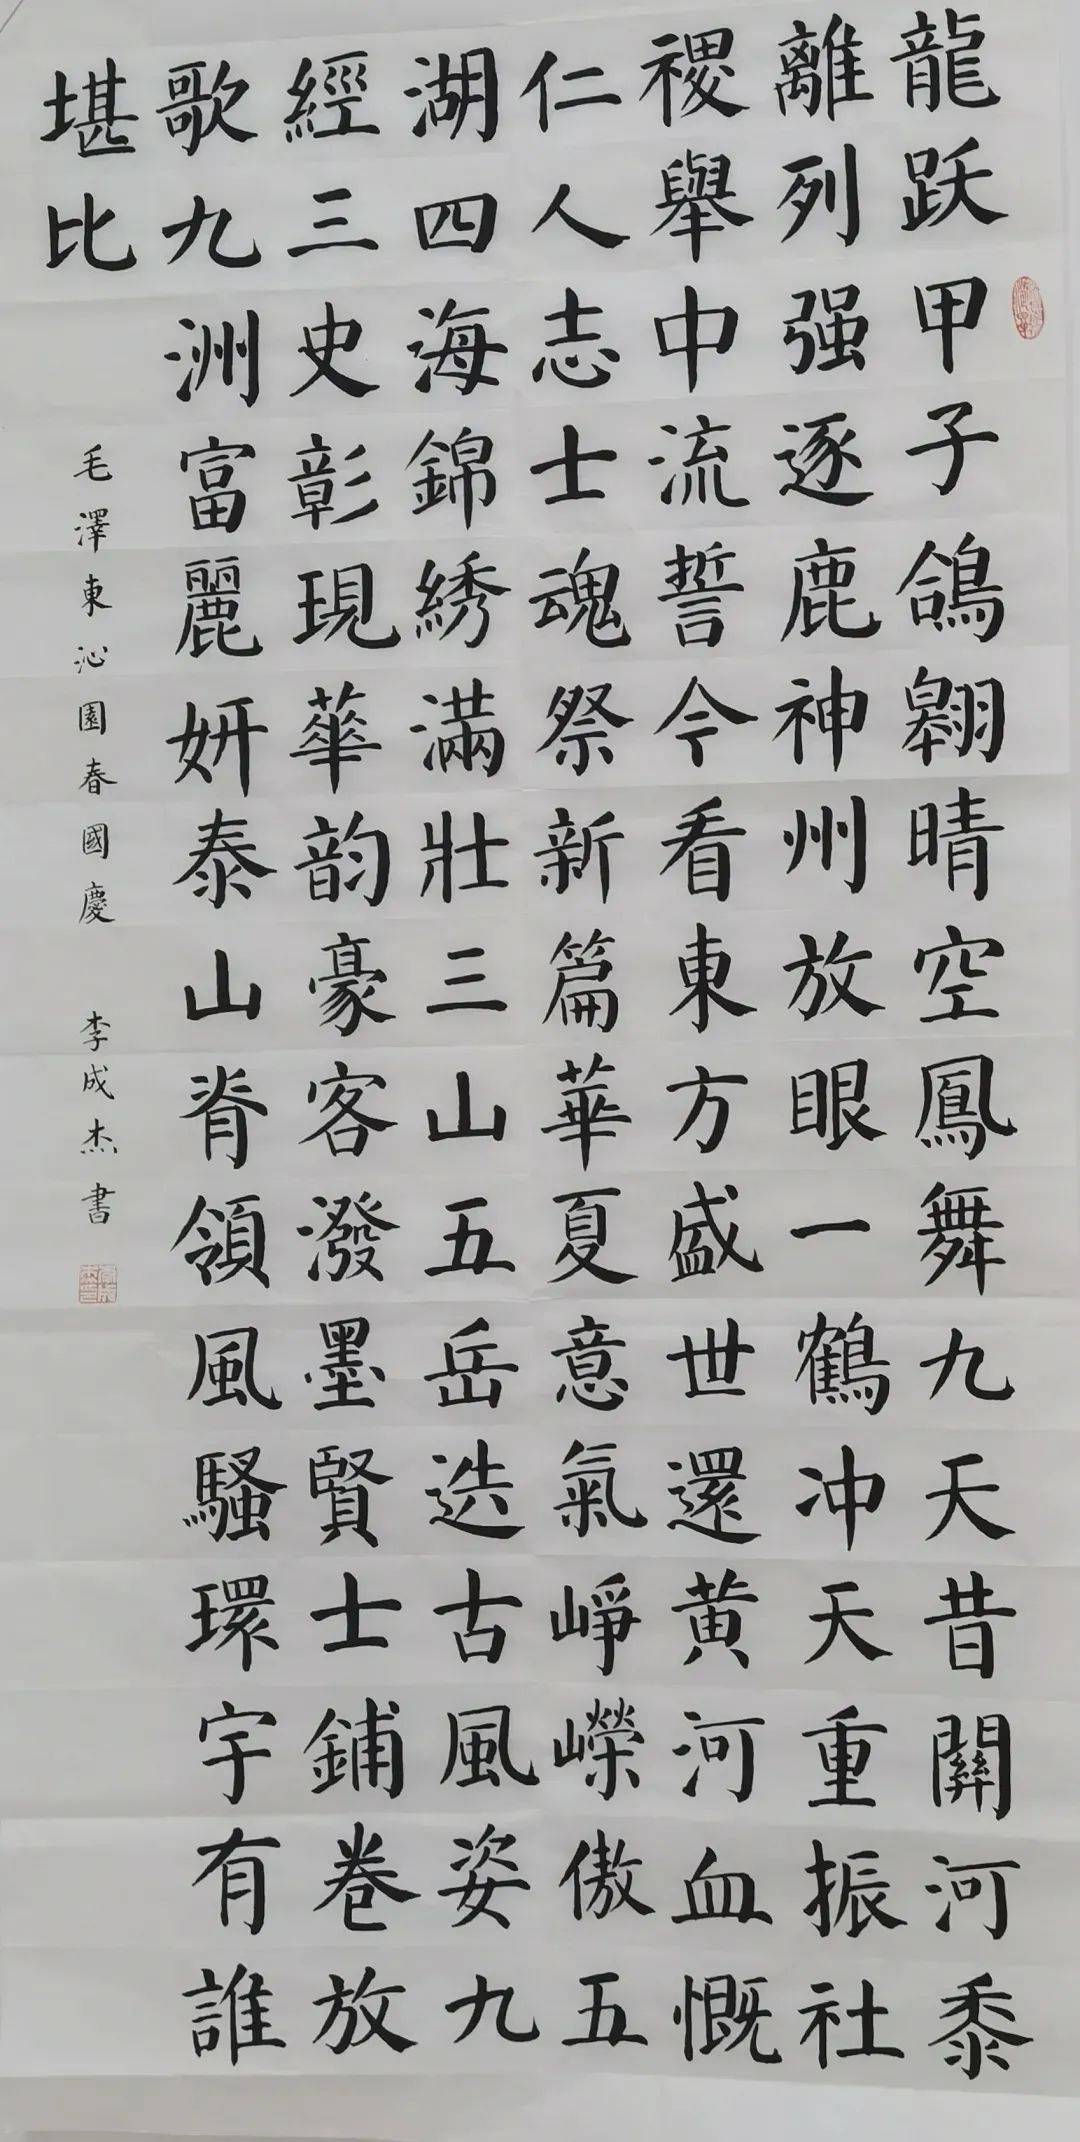 龍跃甲子鴿翱晴空鳳舞九天昔關河黍
離列强逐鹿神州放眼一鶴冲天重振社
稷舉中流誓今看東方盛世還黄河血慨
仁人志士魂祭新篇華夏意氣崢嶸傲五
湖四海錦綉滿壯三山五岳迭古風姿九
經三史彰現華韵豪客潑墨賢士鋪卷放
歌九洲富麗妍泰山脊領風騷環宇有誰
堪比
毛澤東沁園春國慶 李成杰書